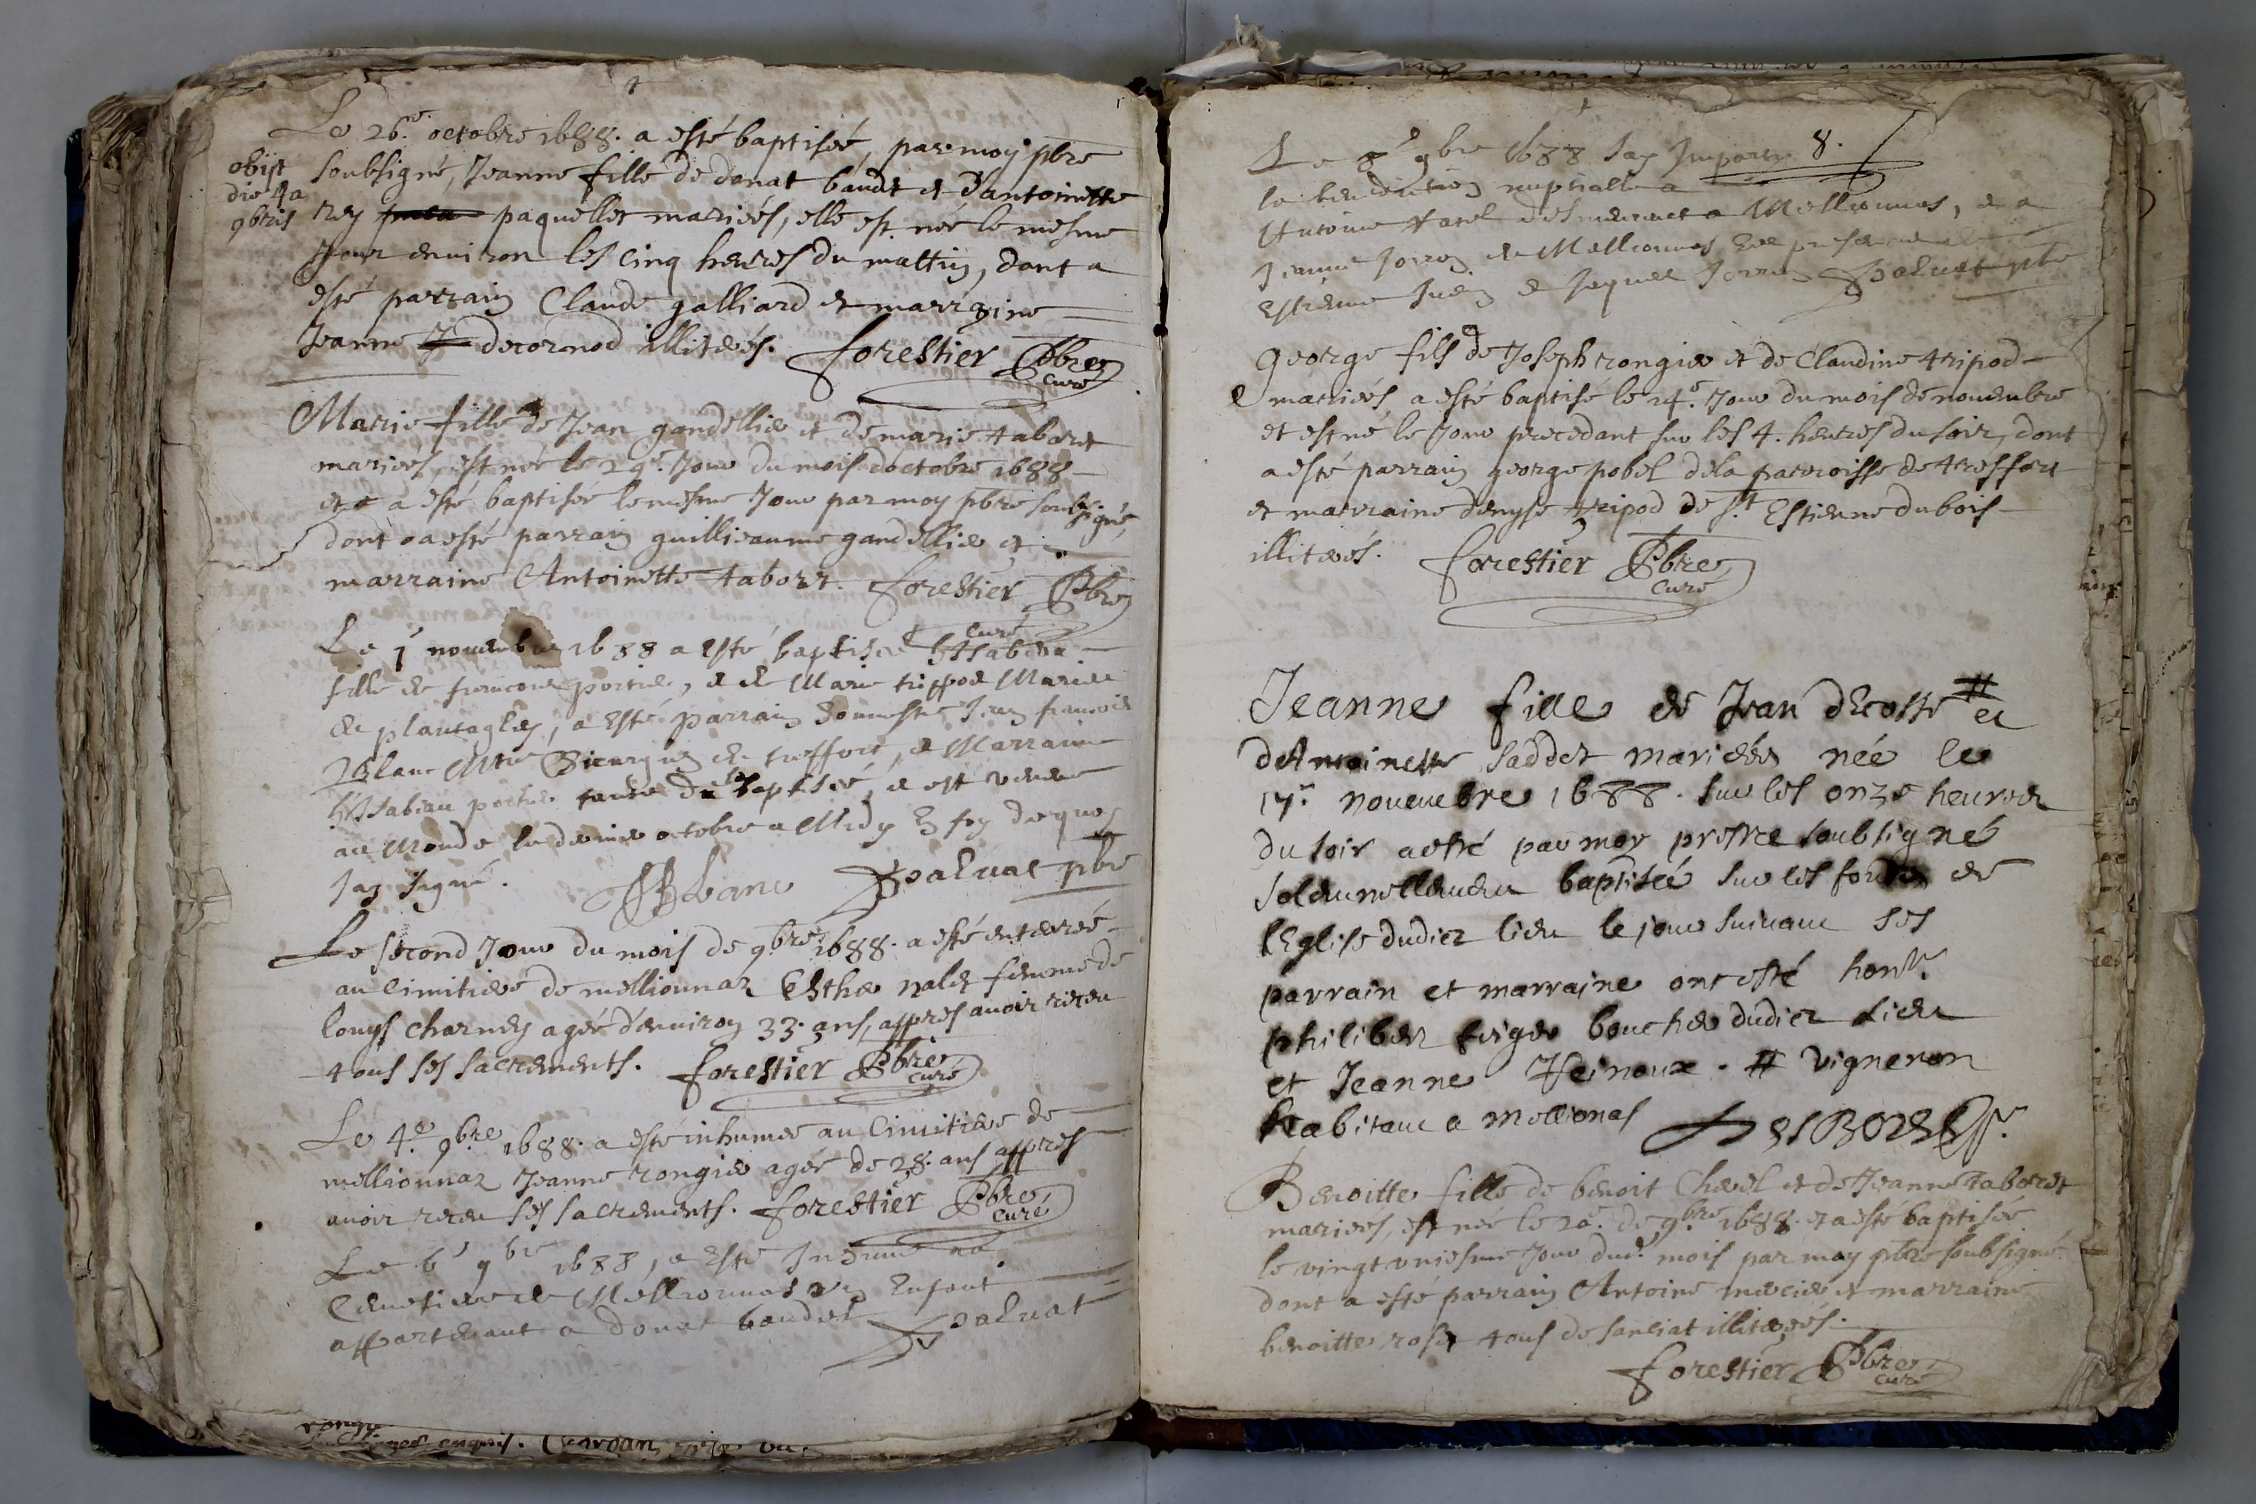 Le 26.e octobre 1688. a esté baptisée, par moy pbre
obijt
die 4a
9bris
soubsigné, Jeanne fille de donat baudet et d'antoinette
rey paquellet mariées, elle est née le mesme
Jour enuiron les cinq heures du mattin, dont a
esté parrain Claude galliard et marraine
Jeanne decornod illiterés. forestier Pbre
curé
Marie fille de Jean gandellier et de marie taboret
mariées, est née le 29.e Jour du mois d'octobre 1688
et a esté baptisée le mesme Jour par moy pbre soubsigné,
dont a esté parrain guillieaume gandellier et
marraine Antoinette taboret. forestier Pbre
curé
Le 1 nouembre 1688 a esté baptisée
fille de portier, et de Marie trippod Mariée
de plantaglay, a esté parrain Jean francois
Blanc de treffort, et Marraine
portier tante de la baptisée, et est venue
au Monde le dernier octobre a Midy En foy de quoy
Jay signé. Blanc paluat pbre
Le second Jour du mois de 9bre 1688. a esté enterrée
au Cimitiere de mellionnaz Esther nalet femme de
louys charney agée d'enuiron 33. ans, appres auoir receu
tous ses sacrements. forestier Pbre
curé
Le 4.e 9bre 1688. a esté inhumée au Cimitiere de
mellionnaz Jeanne rongier agée de 28. ans appres
auoir receu ses sacrements. forestier Pbre
curé
Le 6 9bre 1688, a esté Inhumé au
Cimetiere de Mellionnas un Enfant
appartenant a donat baudet paluat
8.
Le 8 9bre 1688 Jay Imparty
la benediction nuptialle a
Antoine demeurant a Mellionnas, et a
Jeanne Joren de Mellionnas En presence de
Estienne Juen et Jaques Joren paluat pbre
George fils de Joseph rongier et de Claudine tripod
mariées, a esté baptisé le 14.e Jour du mois de nouembre
et est né le Jour precedant sur les 4. heures du soir, dont
a esté parrain george pobel de la parroisse de treffort
et marraine denyse tripod de st Estienne du bois
illiterés. forestier Pbre
curé
Jeanne fille de Jean decosté # et
d'Antoinette saddet mariées née le
17.e nouembre 1688. sur les onze heures
du soir a esté par moy prestre soubsigné
solemnellement baptisée sur les fonds de
l'Eglise dudict lieu le jour suiuant ses
parrain et marraine ont esté honble
philibert boucher dudict Lieu
et Jeanne . # vigneron
habitant a meillonas DesBordes
Benoitte fille de benoit Chael et de Jeanne taboret
mariées, est née le 20.e de 9bre 1688. et a esté baptisée
le vingt vniesme Jour dud. mois par moy pbre soubsigné
dont a esté parrain Antoine mercier et marraine
benoitte rosy tous de sanciat illiterés.
forestier Pbre
curé